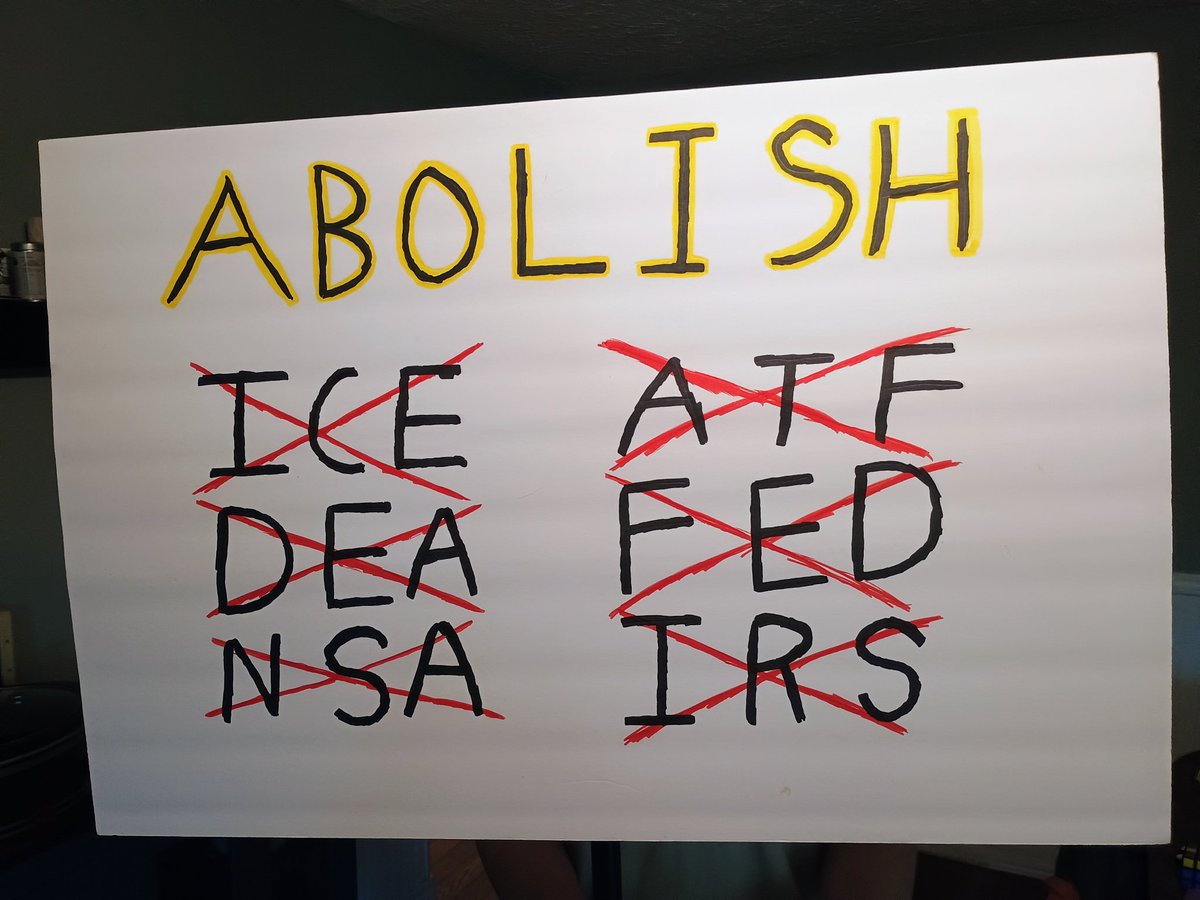 ABOLISH
ICE ATF
DEA FED
NSA IRS